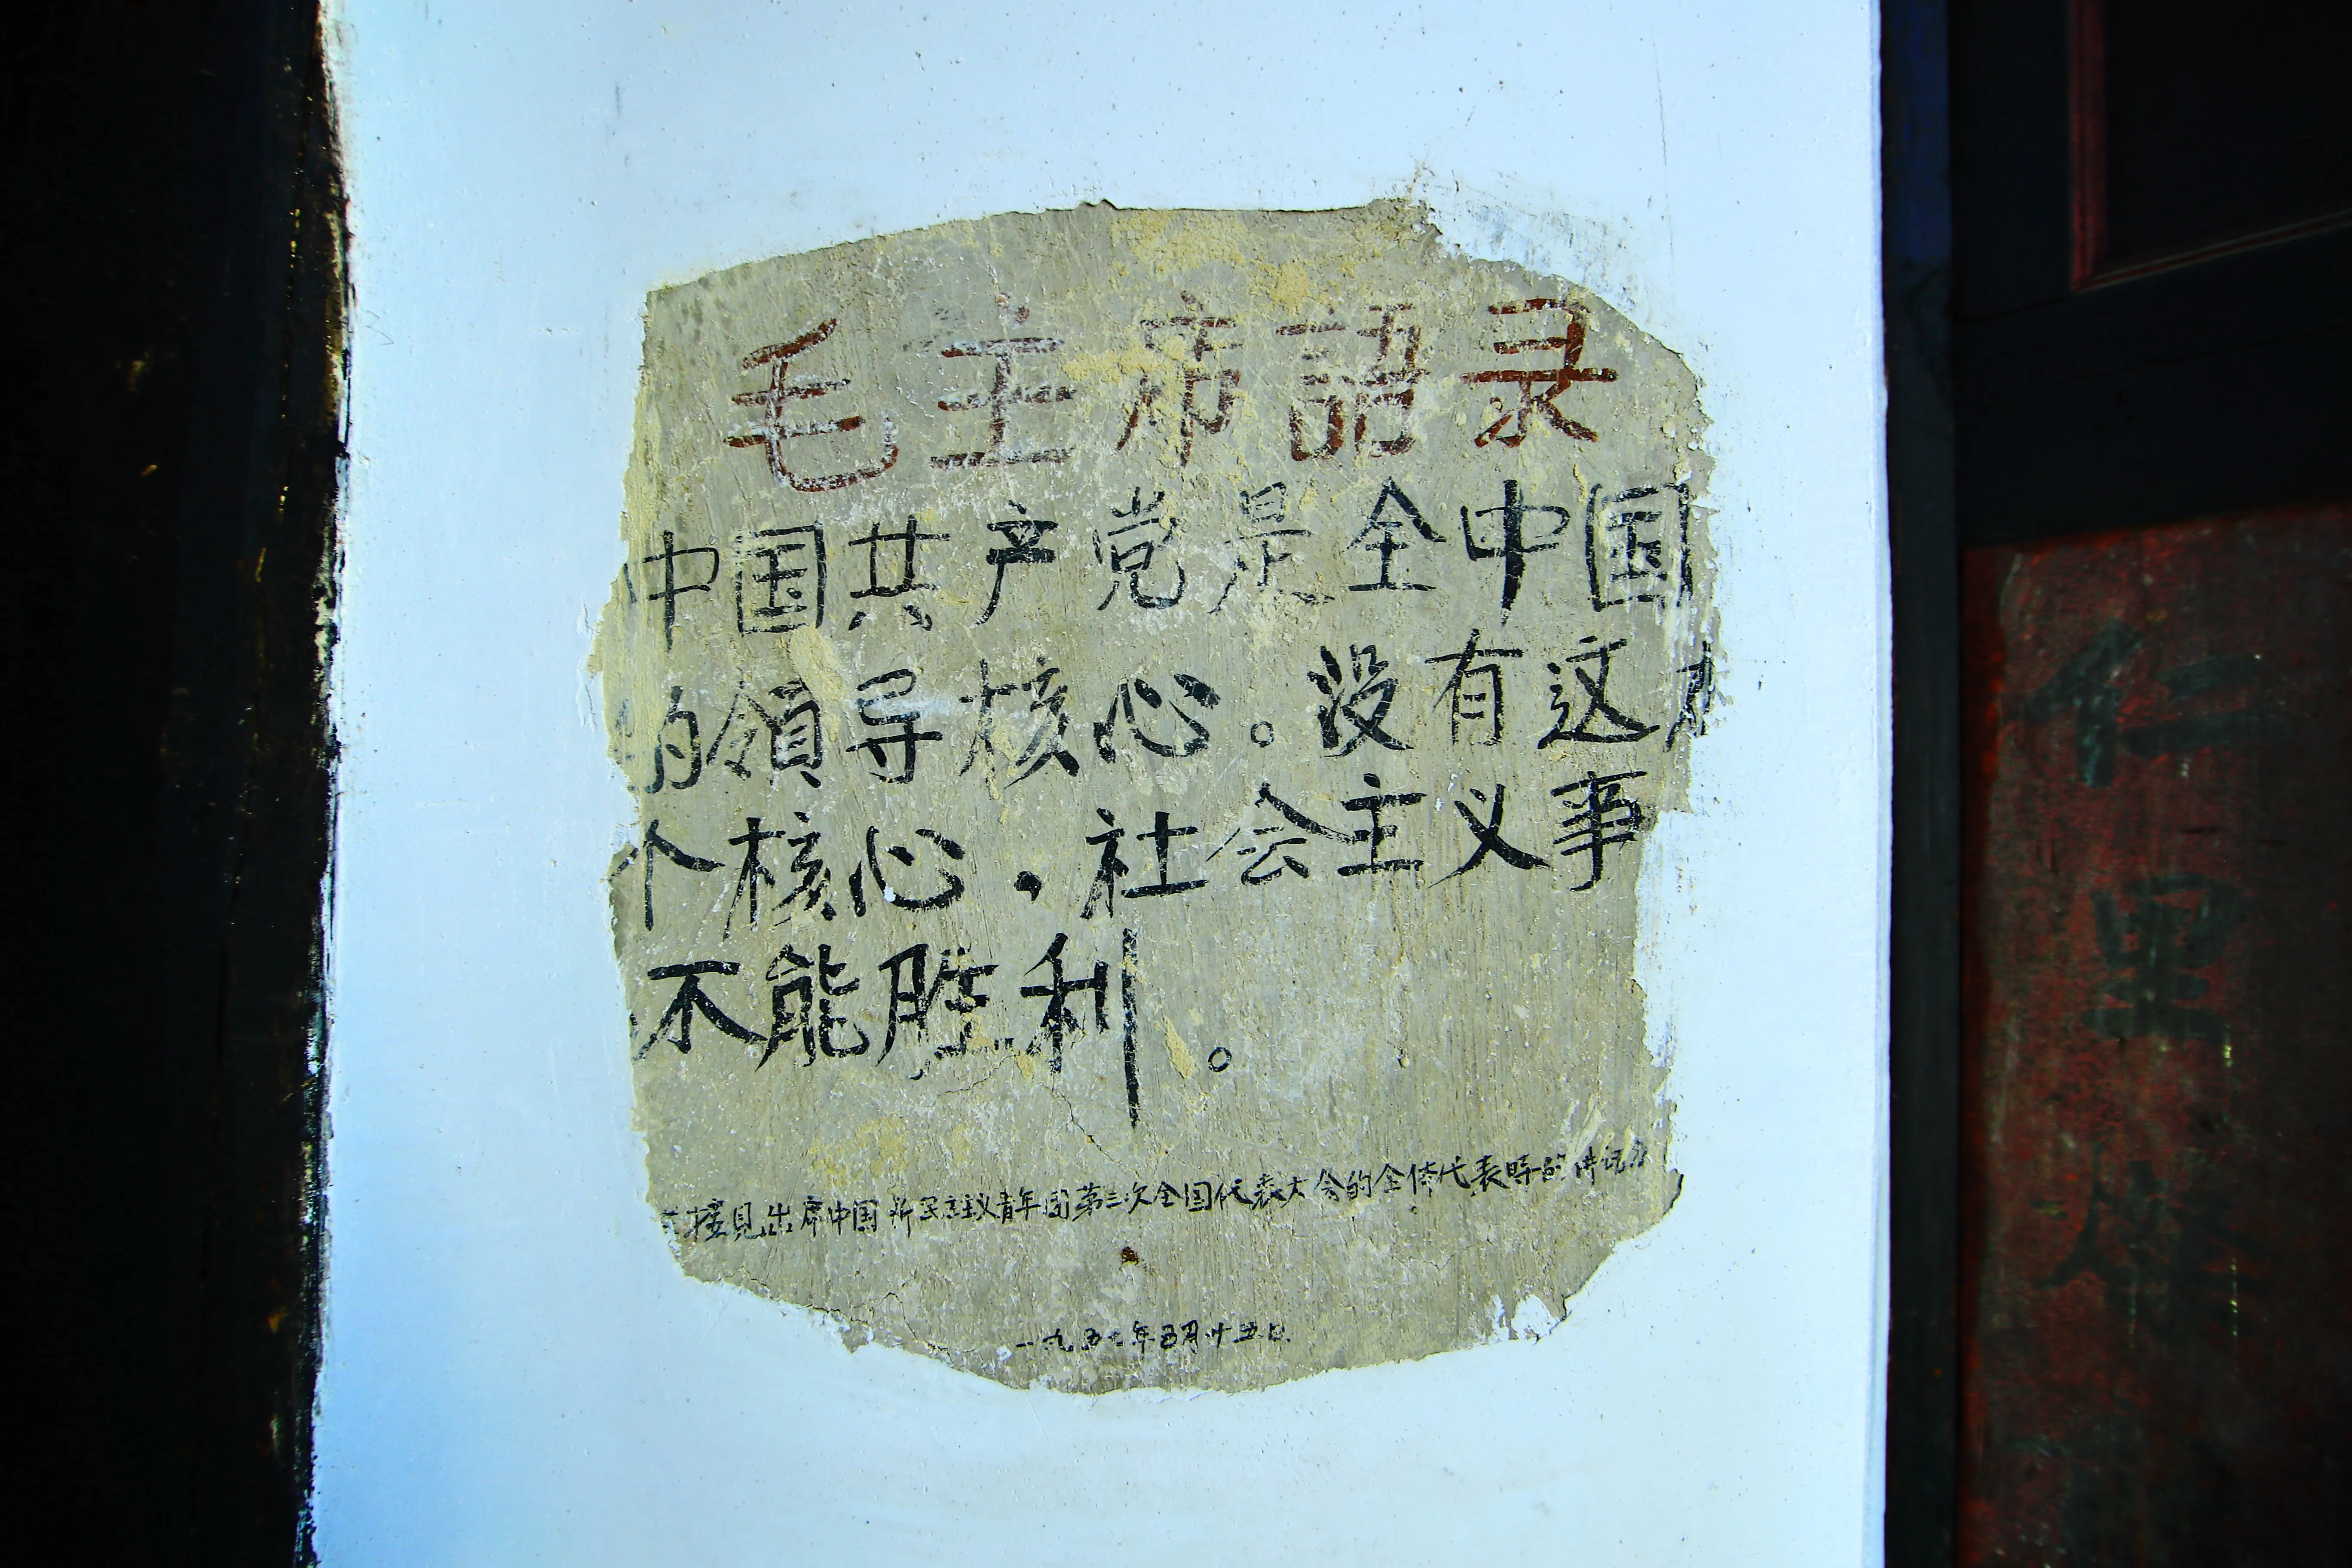 毛主席語录
中国共产党是全中国
的領导核心。没有这
个核心，社会主义事
不能胜利。
接見出席中国新民主主义青年团第三次全国代表大会的全体代表時的讲话
一九五七年五月廿五日
仁里